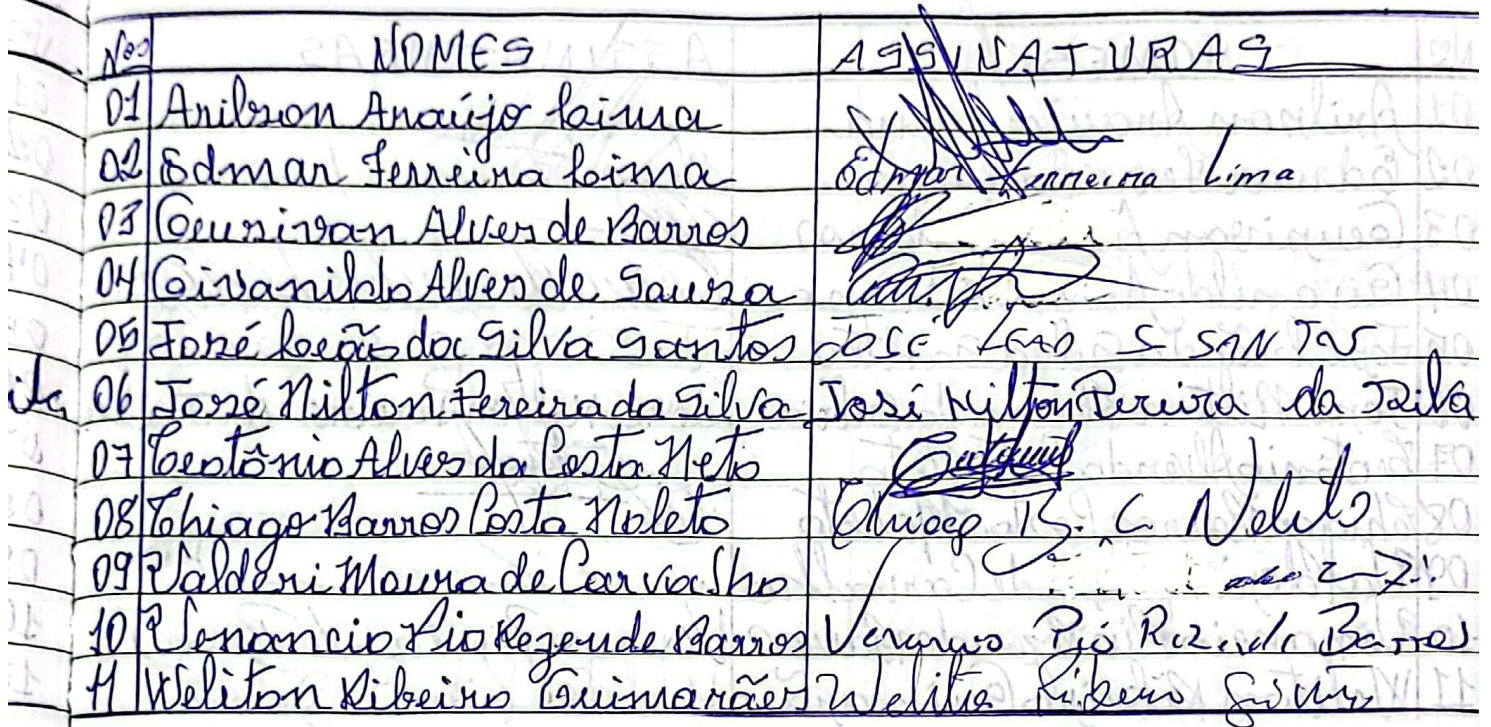 Nºs NOMES ASSINATURAS
01 Arilson Araújo Lima
02 Edmar Ferreira Lima Edmar Ferreira Lima
03 Geurivan Alves de Barros
04 Givanildo Alves de Sousa
05 José Leão da Silva Santos JOSÉ LEAO S SANTOS
06 José Nilton Pereira da Silva José Nilton Pereira da Silva
07 Teotônio Alves da Costa Neto
08 Thiago Barros Costa Noleto Thiago B. C. Noleto
09 Valderi Moura de Carvalho
10 Venancio Pio Rezende Barros Venancio Pio Rezende Barros
11 Weliton Ribeiro Guimarães Weliton Ribeiro